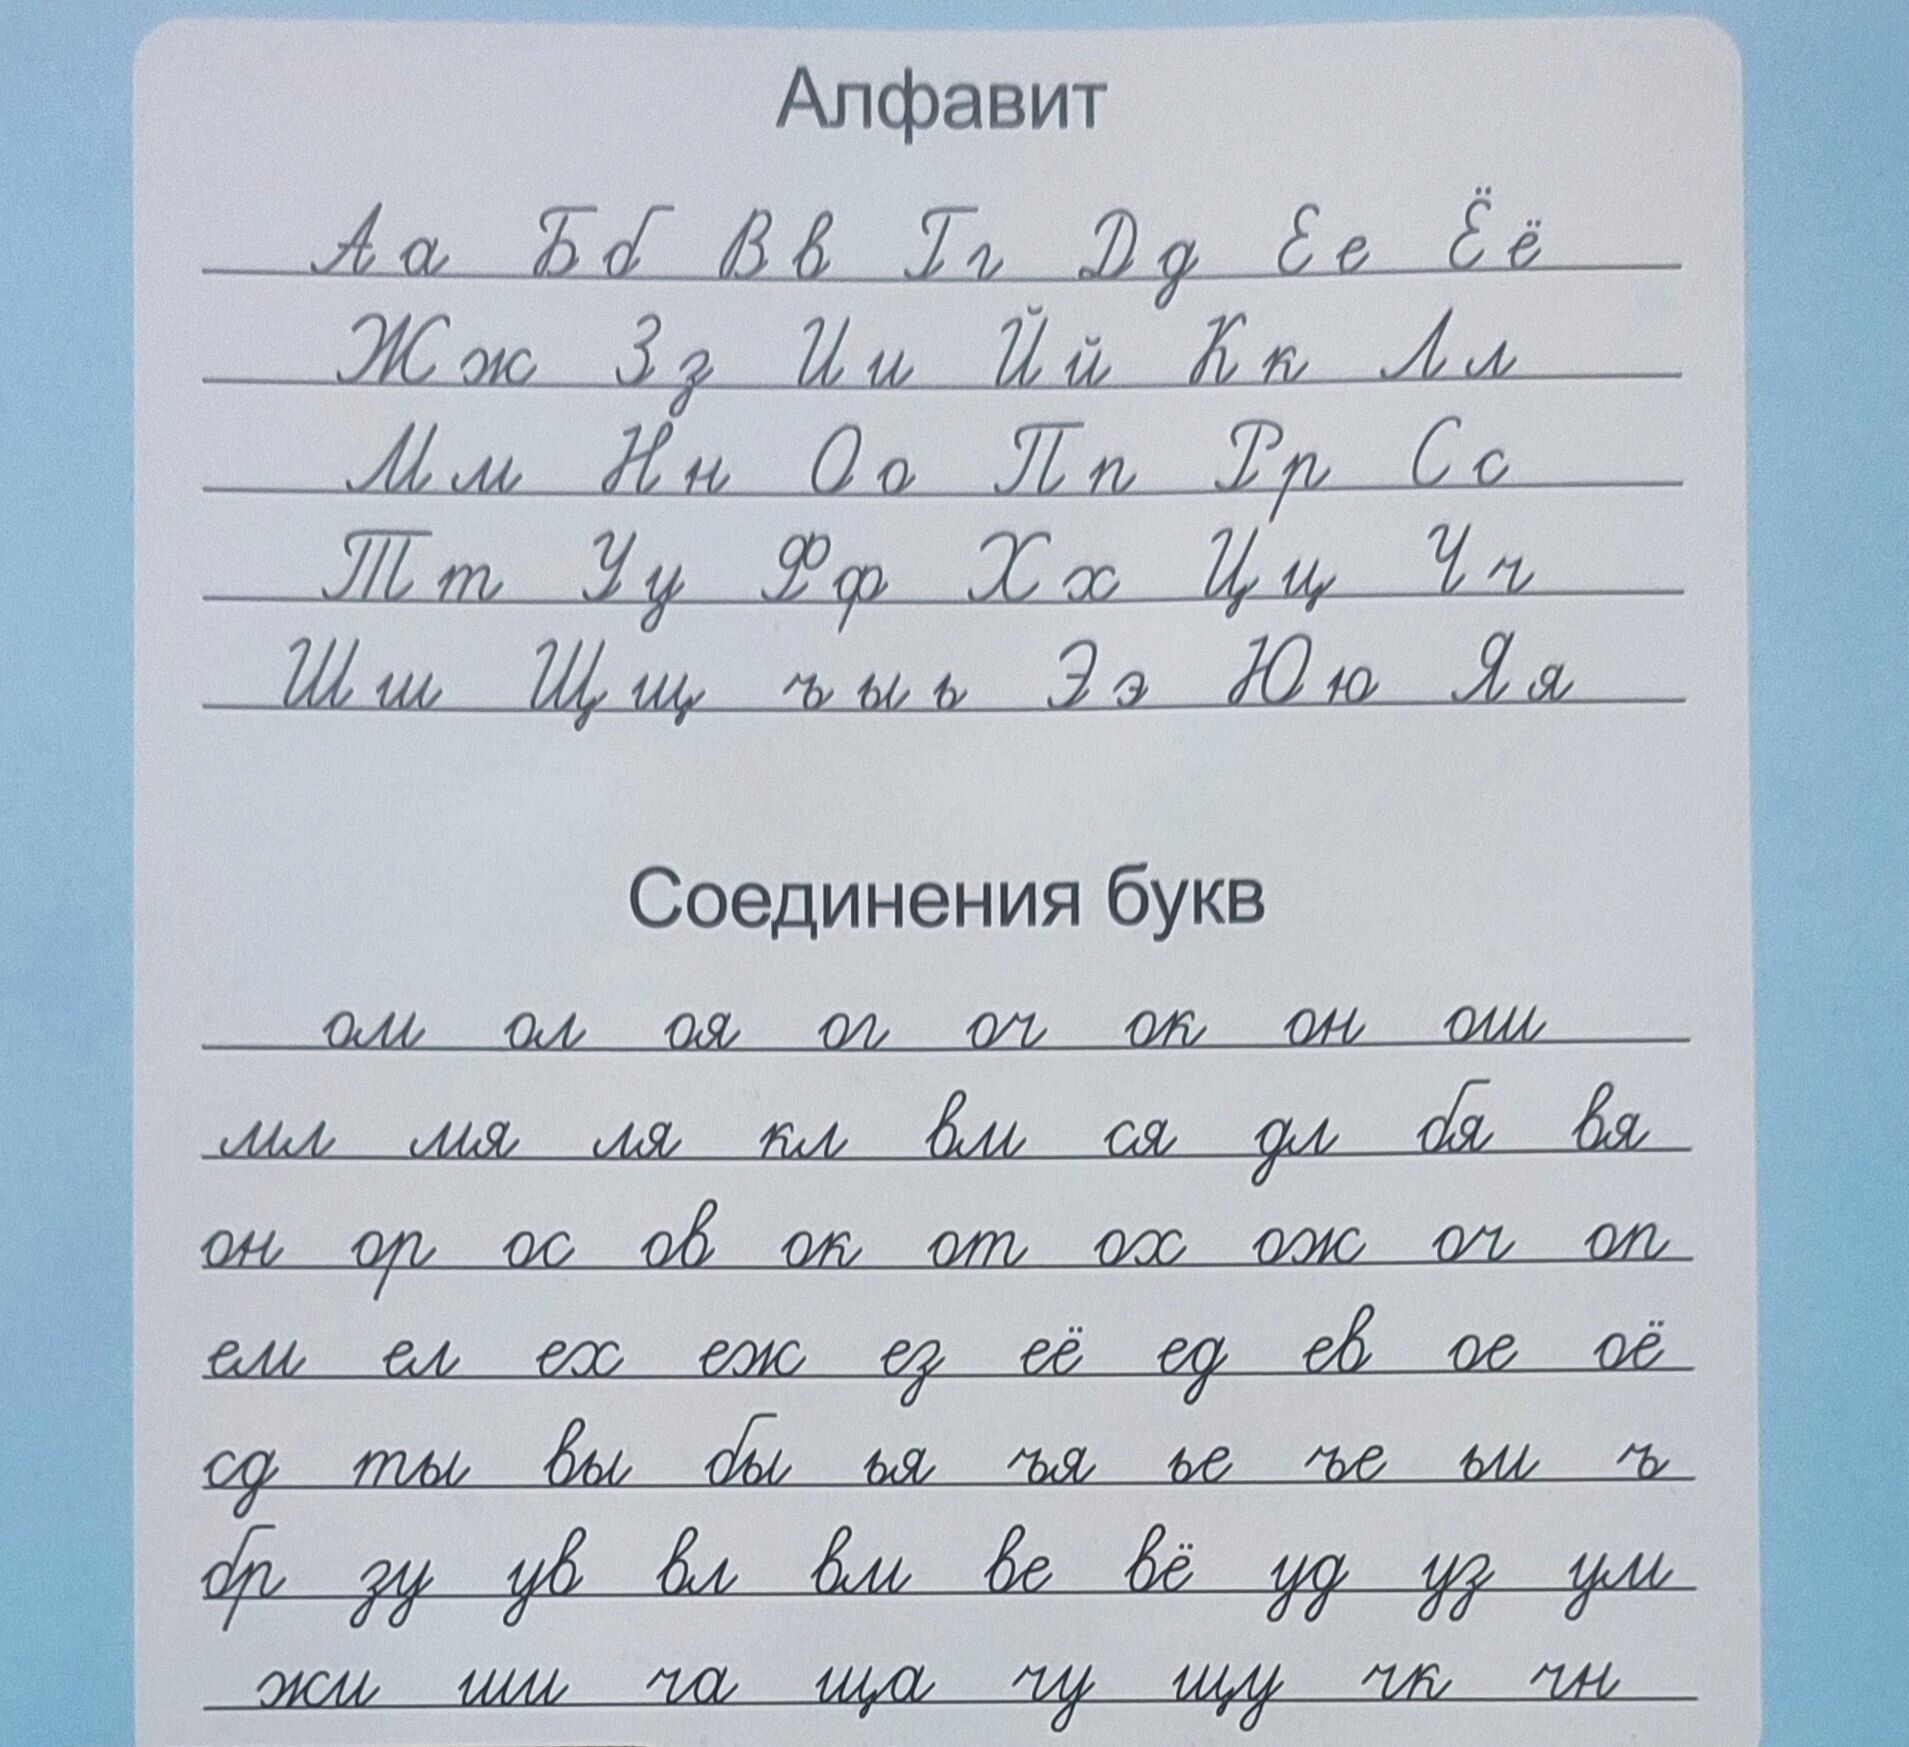 Алфавит
Аа Бб Вв Гг Дд Ее Ёё
Жж Зз Ии Йй Кк Лл
Мм Нн Оо Пп Рр Сс
Тт Уу Фф Хх Цц Чч
Шш Щщ ъ ы ь Ээ Юю Яя
Соединения букв
ом ол оя ог оч ок он ош
мл мя ля кл вм ся дл бя вя
он ор ос ов ок от ох ож оч оп
ем ел ех еж ез её ед ев ое оё
сд ты вы бы ья ъя ье ъе ьи ъ
бр зу ув вл вм ве вё уд уз ум
жи ши ча ща чу щу чк чн